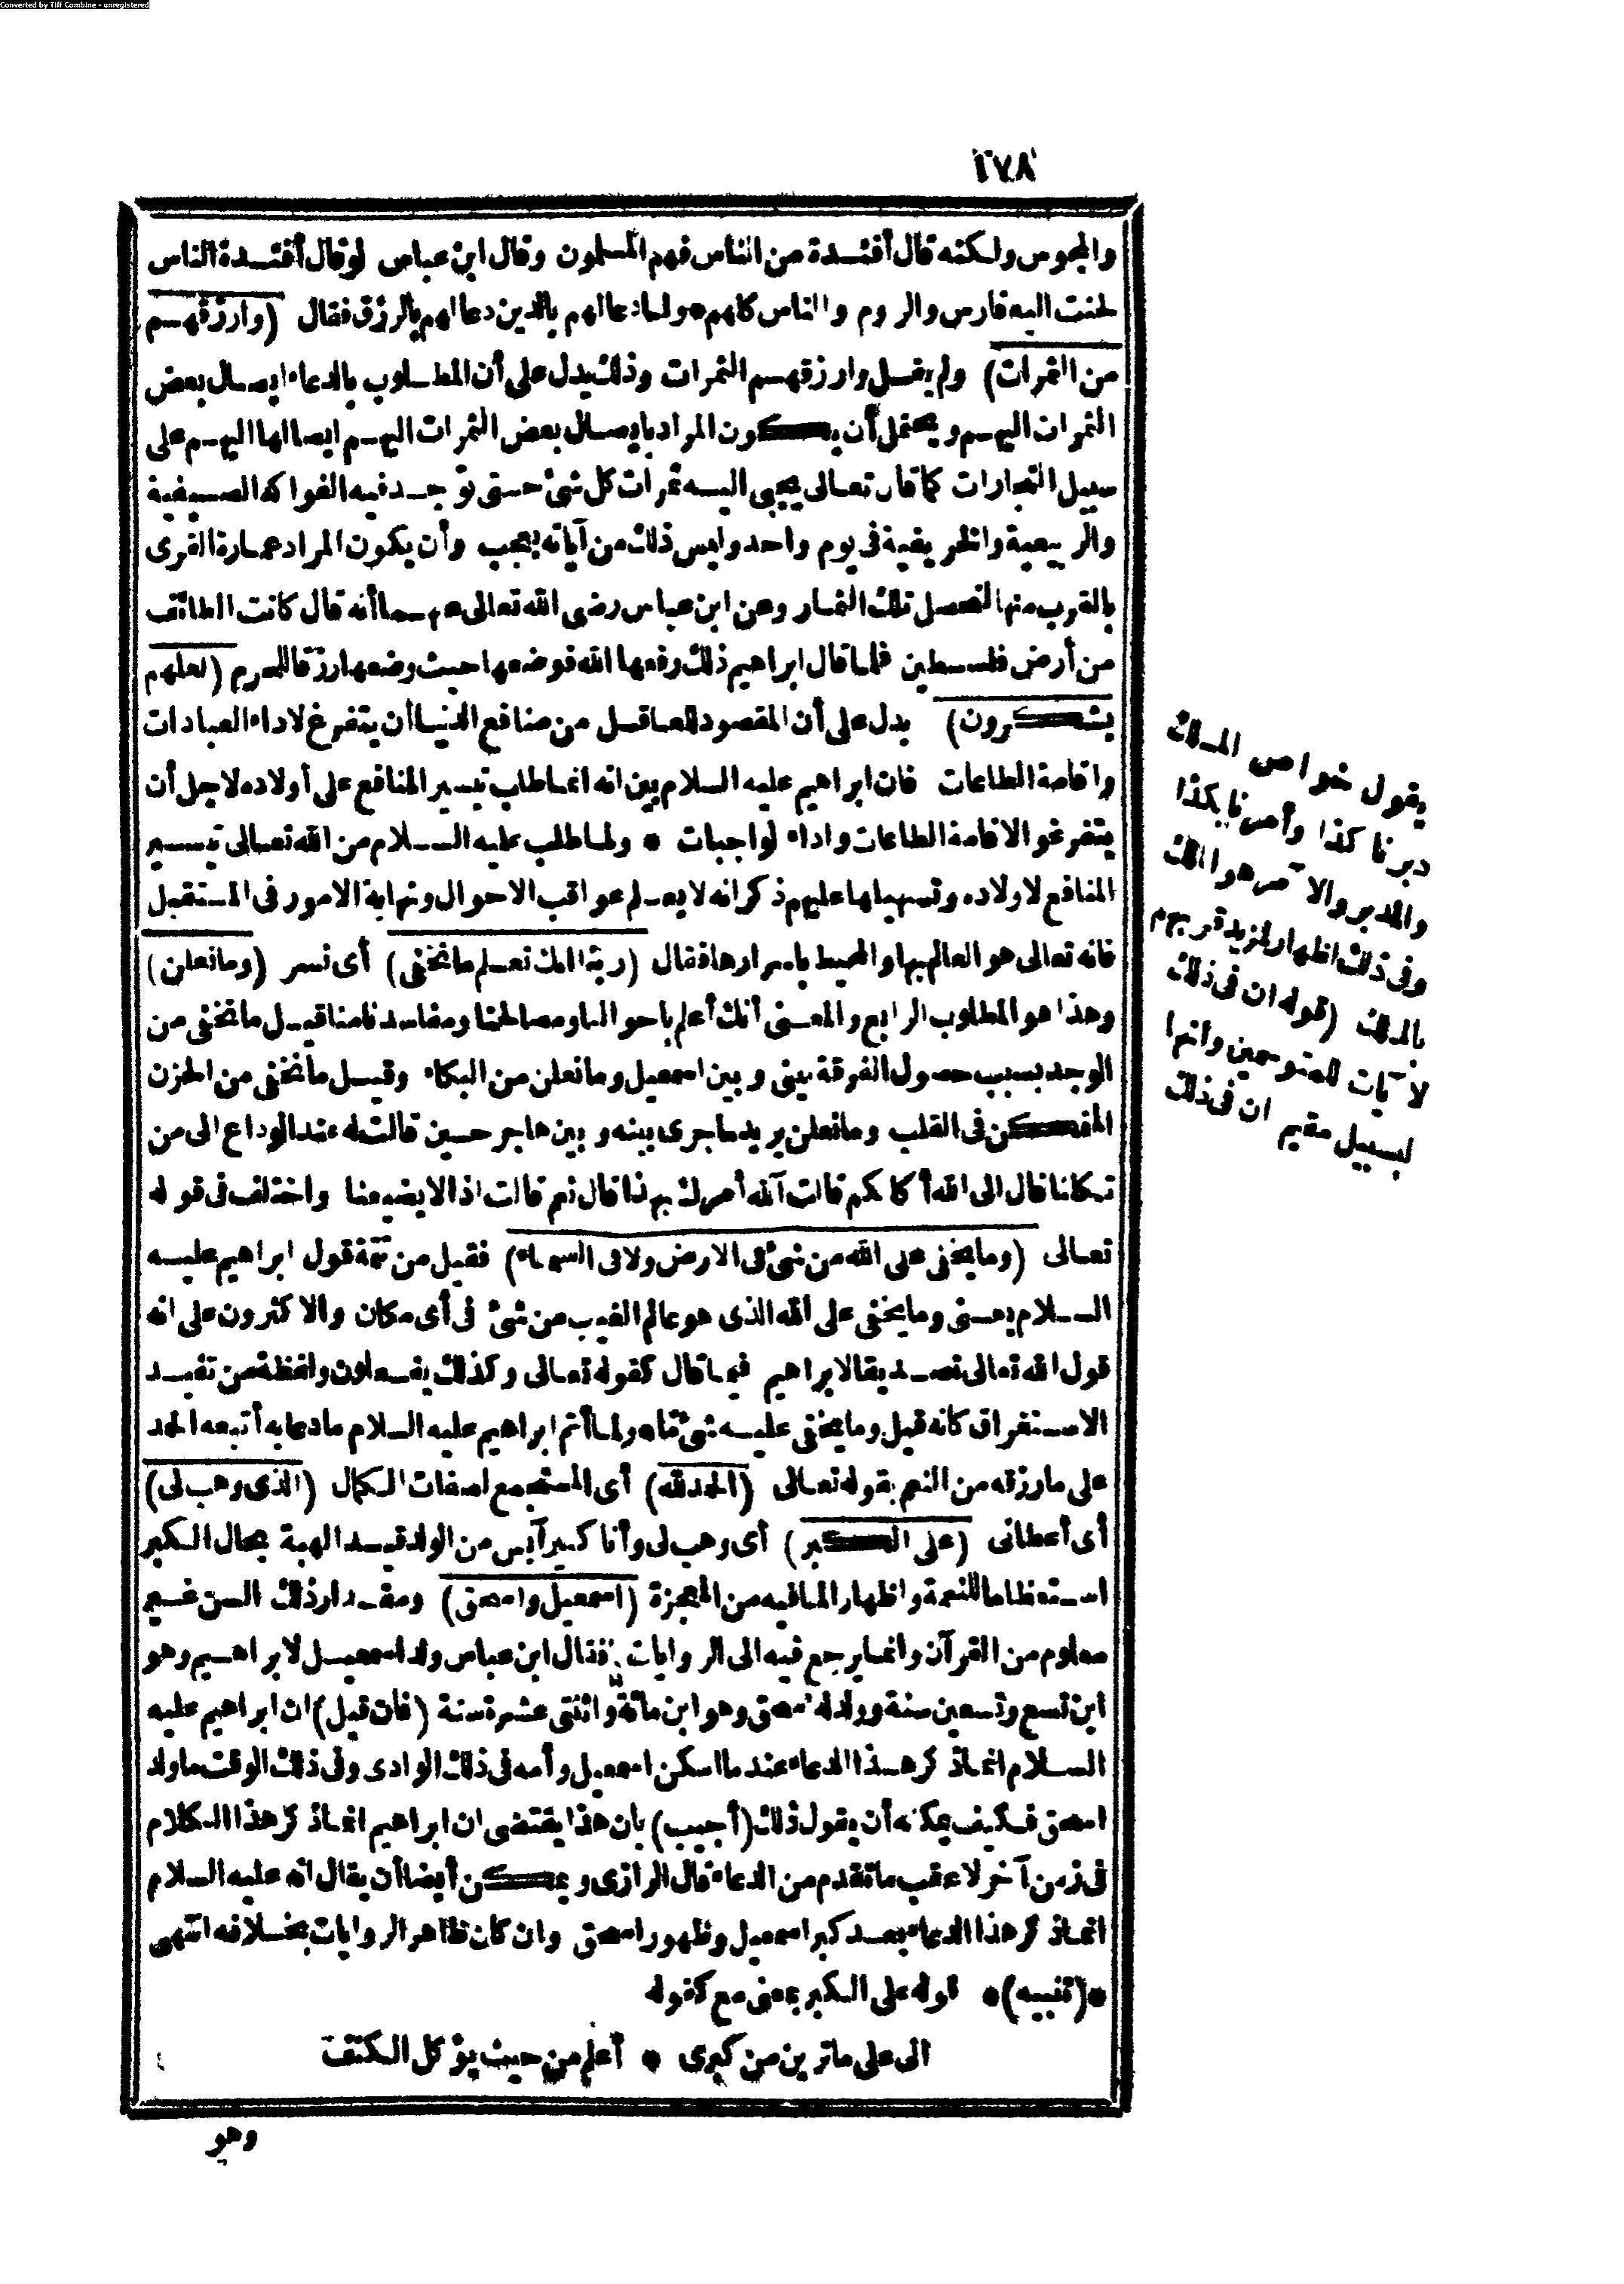 Converted by Tiff Combine - unregistered
١٧٨
والمجوس ولكنه قال أفئدة من الناس فهم المسلمون وقال ابن عباس لو قال أفئدة الناس
لحنت اليه فارس والروم والناس كلهم ه ولما دعا لهم بالدين دعا لهم بالرزق فقال (وارزقهم
من الثمرات) ولم يقل وارزقهم الثمرات وذلك يدل على أن المطلوب بالدعاء ايصال بعض
الثمرات اليهم ويحتمل أن يكون المراد بايصال بعض الثمرات اليهم ايصالها اليهم على
سبيل التجارات كما قال تعالى يجبى اليه ثمرات كل شئ حتى توجد فيه الفواكه الصيفية
والربيعية والخريفية فى يوم واحد وليس ذلك من آياته بعجب وأن يكون المراد عمارة القرى
بالقرب منها لتحصل تلك الثمار وعن ابن عباس رضى الله تعالى عنهما أنه قال كانت الطائف
من أرض فلسطين فلما قال ابراهيم ذلك رفعها الله فوضعها حيث وضعها رزقا للحرم (لعلهم
يشكرون) يدل على أن المقصود للعاقل من منافع الدنيا أن يتفرغ لاداء العبادات
واقامة الطاعات فان ابراهيم عليه السلام بين انه انما طلب تيسير المنافع على أولاده لاجل أن
يتفرغوا لاقامة الطاعات واداء لواجبات * ولما طلب عليه السلام من الله تعالى تيسير
المنافع لاولاده وتسهيلها عليهم ذكر انه لا يعلم عواقب الاحوال ونهاية الامور فى المستقبل
فانه تعالى هو العالم بها والمحيط باسرارها فقال (ربنا انك تعلم ما نخفى) أى نسر (وما نعلن)
وهذا هو المطلوب الرابع والمعنى أنك أعلم باحوالنا ومصالحنا ومفاسدنا منا قيل ما نخفى من
الوجد بسبب حصول الفرقة بينى وبين اسمعيل وما نعلن من البكاء وقيل ما نخفى من الحزن
المتمكن فى القلب وما نعلن يريد ما جرى بينه وبين هاجر حسين قالت له عند الوداع الى من
تكلنا قال الى الله أكلكم قالت آلله أمرك بهذا قال نعم قالت اذا لا يضيعنا واختلف فى قوله
تعالى (وما يخفى على الله من شئ فى الارض ولا فى السماء) فقيل من تتمة قول ابراهيم عليه
السلام يعنى وما يخفى على الله الذى هو عالم الغيب من شئ فى أى مكان والاكثرون على انه
قول الله تعالى تصديقا لابراهيم فيما قال كقوله تعالى وكذلك يفعلون ولفظة من تفيد
الاستغراق كانه قيل وما يخفى عليه شئ تما ه ولما أتم ابراهيم عليه السلام ما دعا به أتبعه الحمد
على ما رزقه من النعم بقوله تعالى (الحمد لله) أى المستجمع لصفات الكمال (الذى وهب لى)
أى أعطانى (على الكبر) أى وهب لى وأنا كبير آيس من الولد قيد الهبة بحال الكبر
استعظاما للنعمة واظهار الما فيه من المعجزة (اسمعيل واسحق) ومقدار ذلك السن غير
معلوم من القرآن وانما يرجع فيه الى الروايات فقال ابن عباس ولد اسمعيل لابراهيم وهو
ابن تسع وتسعين سنة وولد له اسحق وهو ابن مائة واثنتى عشرة سنة (فان قيل) ان ابراهيم عليه
السلام انما ذكر هذا الدعاء عند ما اسكن اسمعيل وأمه فى ذلك الوادى وفى ذلك الوقت ما ولد
اسحق فكيف يمكنه أن يقول ذلك (أجيب) بان هذا يقتضى ان ابراهيم انما ذكر هذا الكلام
فى زمن آخر لا عقب ما تقدم من الدعاء قال الرازى ويمكن أيضا أن يقال انه عليه السلام
انما ذكر هذا الدعاء بعد كبر اسمعيل وظهور اسحق وان كان ظاهر الروايات بخلافه انتهى
*(تنبيه)* قوله على الكبر بمعنى مع كقوله
انى على ما ترين من كبرى * أعلم من حيث يؤكل الكتف
وهو
يقول خواص الملك
دبرنا كذا وأمرنا بكذا
والمدبر والآمر هو الملك
وفى ذلك اظهار لمزيد قربهم
بالملك (قوله ان فى ذلك
لآيات للمتوسمين وانها
لبسبيل مقيم ان فى ذلك